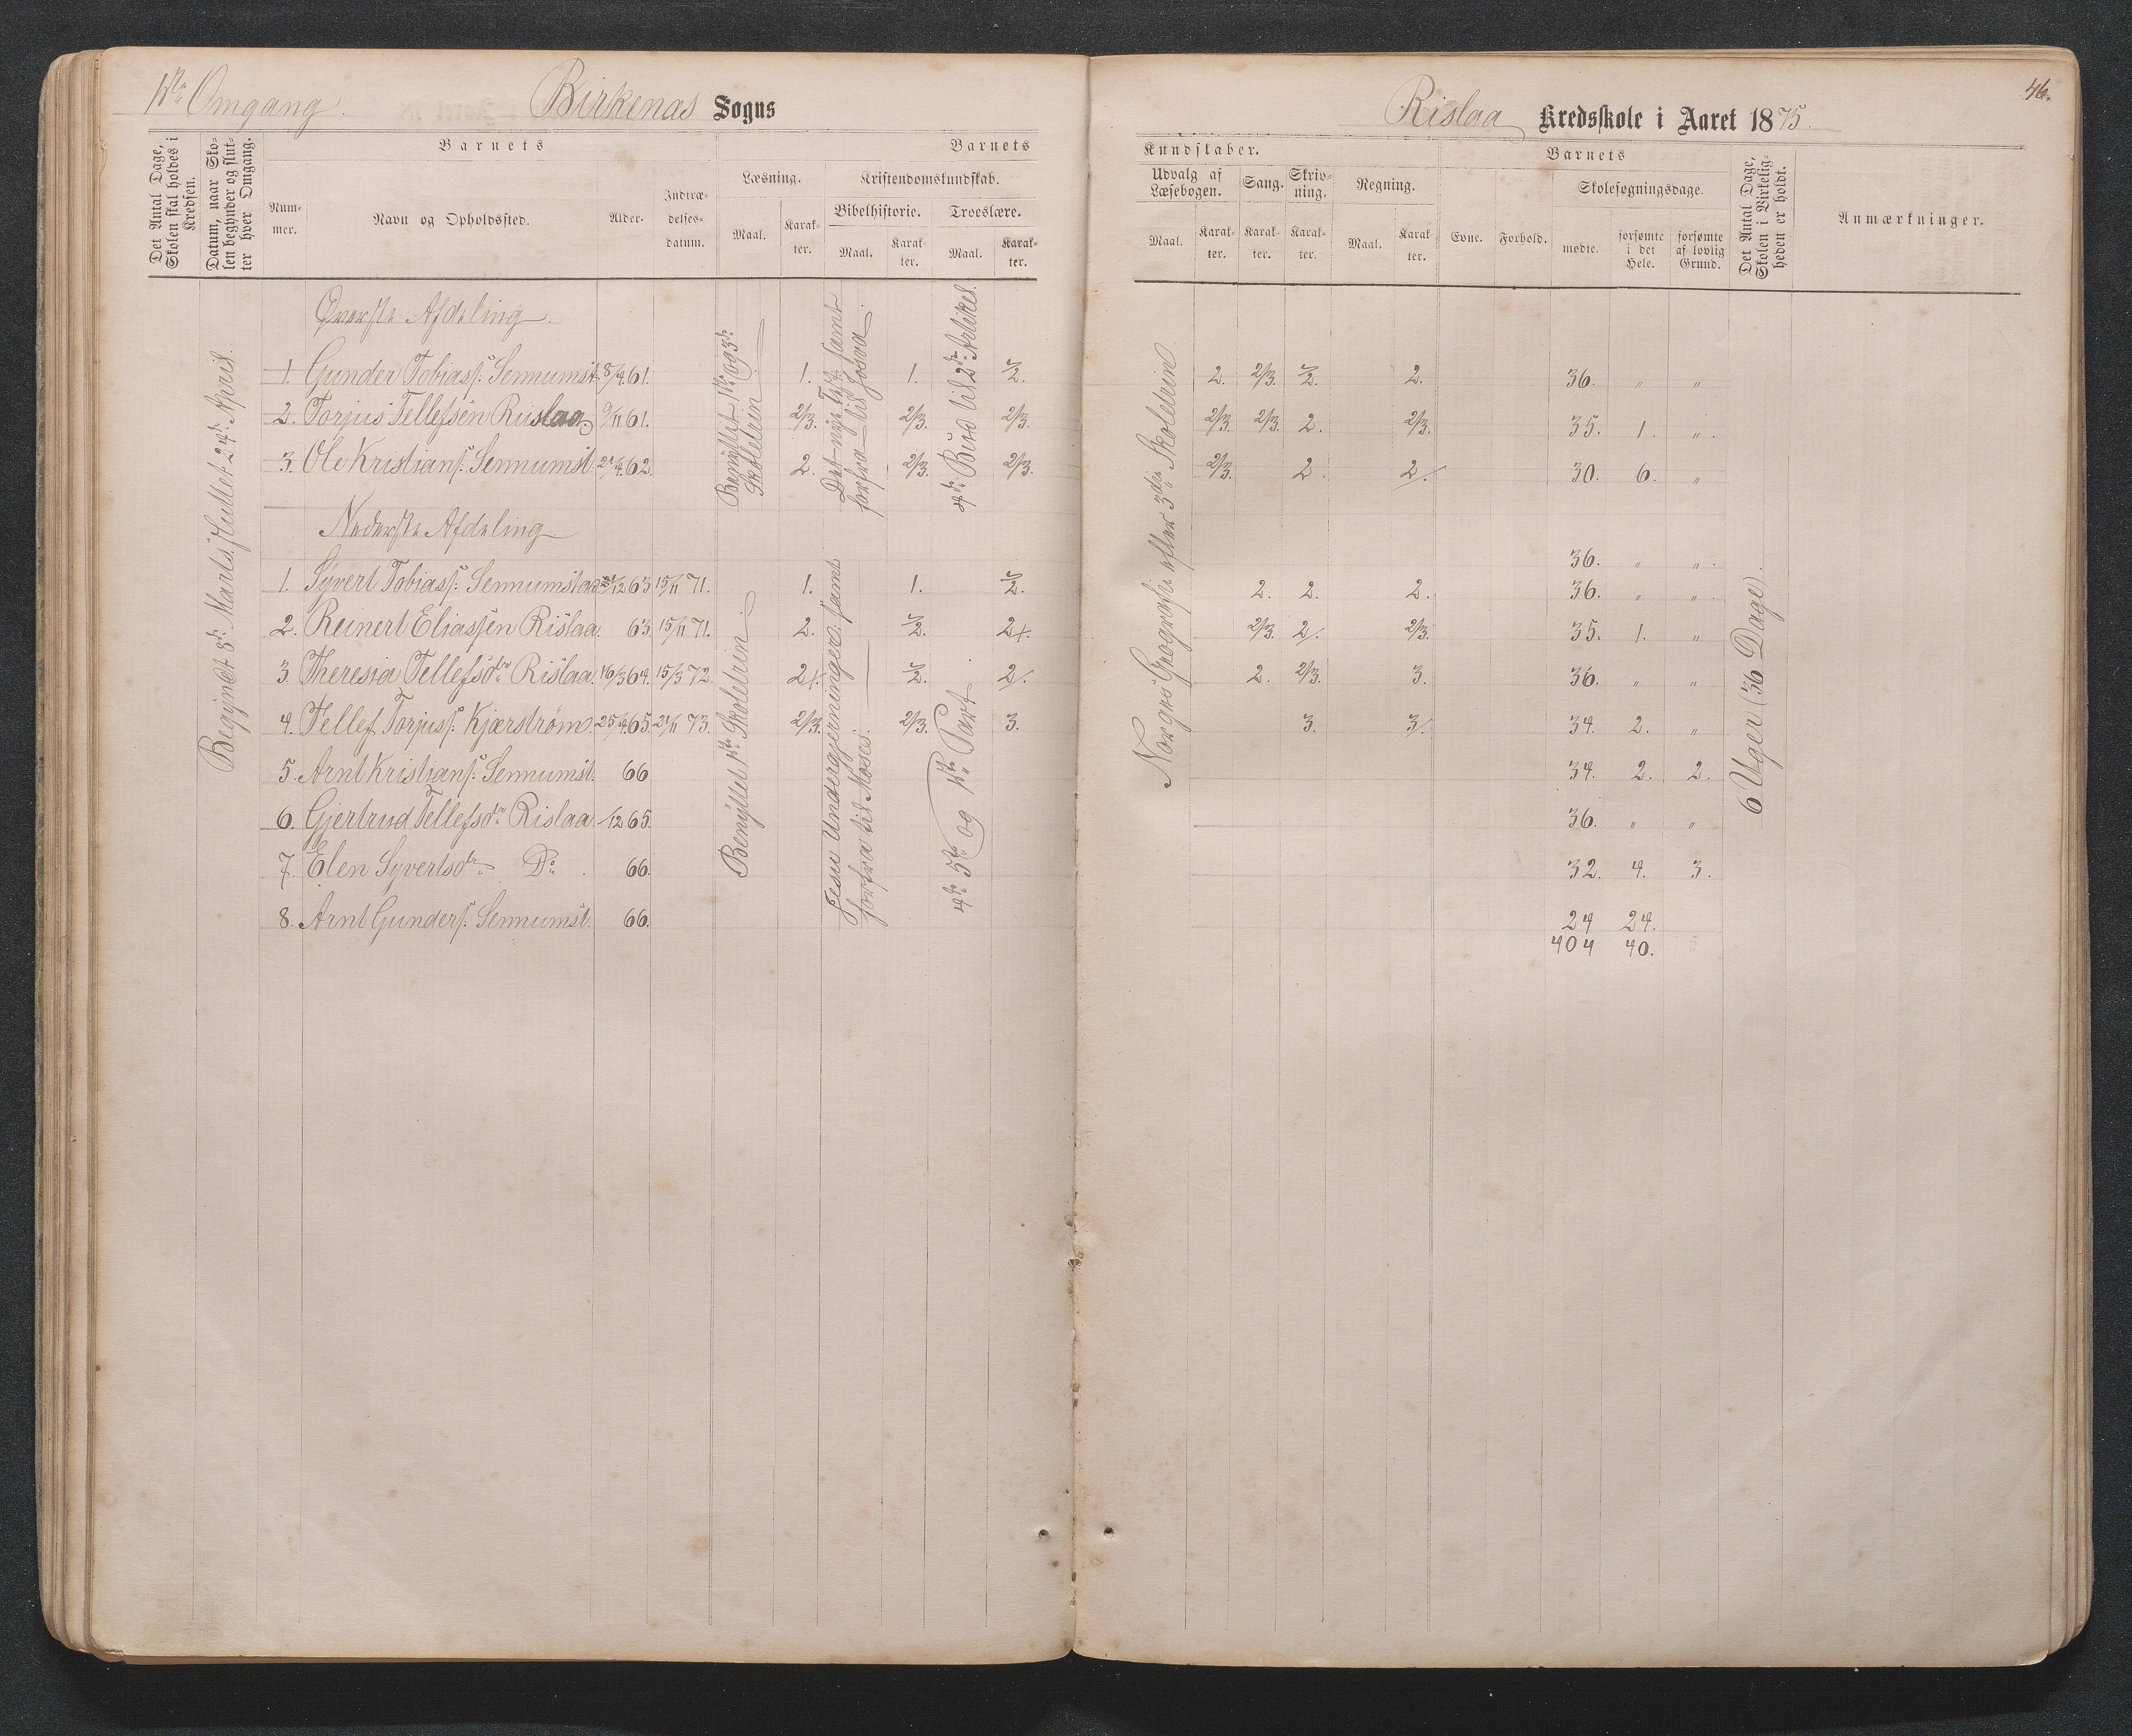 1ste Omgang. Birkenæs Sogns
Det Antal Dage, Skolen skal holdes i Kredsen.
Datum, naar Skolen begynder og slutter hver Omgang.
Barnets
Nummer.
Navn og Opholdssted.
Alder.
Indtrædelsesdatum.
Barnets
Læsning.
Maal. Karakter.
Kristendomskundskab.
Bibelhistorie. Troeslære.
Maal. Karakter. Maal. Karakter.
Begyndt 8de Marts, sluttet 24de April.
Øverste Afdeling.
1. Gunder Tobiass: Sennumst. 8/4 61. 1. 1. 2.
2. Torjus Tellefsen Riislaa 9/11 61. 2/3. 2/3. 2/3.
3. Ole Kristians: Sennumst. 21/4 62. 2. 2/3. 2/3.
Benyttet 1ste og 3die Skoletrin
Det nye Test. samt forfra til Josva
4de Bud til 2den Artikel.
Nederste Afdeling
1. Syvert Tobiass: Sennumstad 31/12 63 15/11 71. 1. 1. 2.
2. Reinert Eliassen Rislaa. 63. 15/11 71. 2. 2. 2+.
3. Theresia Tellefsdtr Rislaa. 16/3 64. 15/3 72. 2+. 2. 2/.
4. Tellef Torjuss: Kjærstrøm. 25/4 65. 21/11 73. 2/3. 2/3. 3.
5. Arnt Kristians: Sennumst. 66
6. Gjertrud Tellefsdtr Rislaa /12 65.
7. Elen Syvertsdtr Do. 66.
8. Arnt Gunders: Sennumst: 66.
Benyttet 1ste Skoletrin
Jesu Undergjerninger samt forfra til Moses.
4de 5te og 1ste Part
Rislaa Kredsskole i Aaret 1875.
46.
Kundskaber.
Udvalg af Læsebogen.
Maal. Karakter.
Sang. Karakter.
Skrivning. Karakter.
Regning.
Maal. Karakter.
Barnets
Evne. Forhold.
Skolesøgningsdage.
mødte. forsømte i det Hele. forsømte af lovlig Grund.
Det Antal Dage, Skolen i Virkeligheden er holdt.
Anmærkninger.
Norges Geografi efter 3die Skoletrin
2. 2/3. 2. 2. 36. " "
2/3. 2/3. 2. 2/3. 35. 1. ".
2/3. 2. 2/. 30. 6. "
36. " ".
2. 2. 2. 36. " ".
2/3. 2/. 2/3. 35. 1. "
2. 2/3. 3. 36. " "
3. 3/. 34. 2. "
34. 2. 2.
36. " "
32. 4. 3.
24 24.
404 40.
6 Uger (36 Dage).